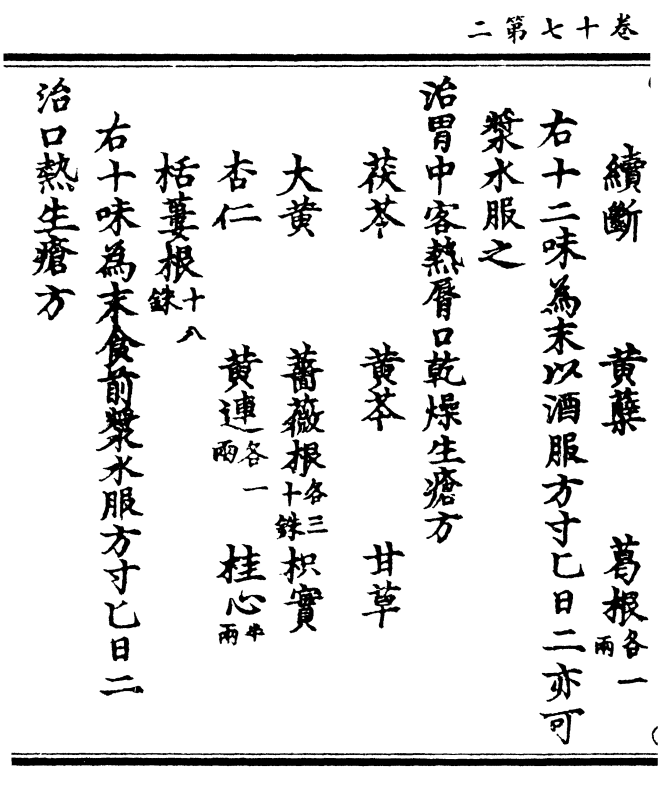 卷十七第二
續斷 黃蘗 葛根各一兩
右十二味為末以酒服方寸匕日二亦可
漿水服之
治胃中客熱脣口乾燥生瘡方
茯苓 黃芩 甘草
大黃 薔薇根各三十銖 枳實
杏仁 黃連各一兩 桂心半兩
栝蔞根十八銖
右十味為末食前漿水服方寸匕日二
治口熱生瘡方